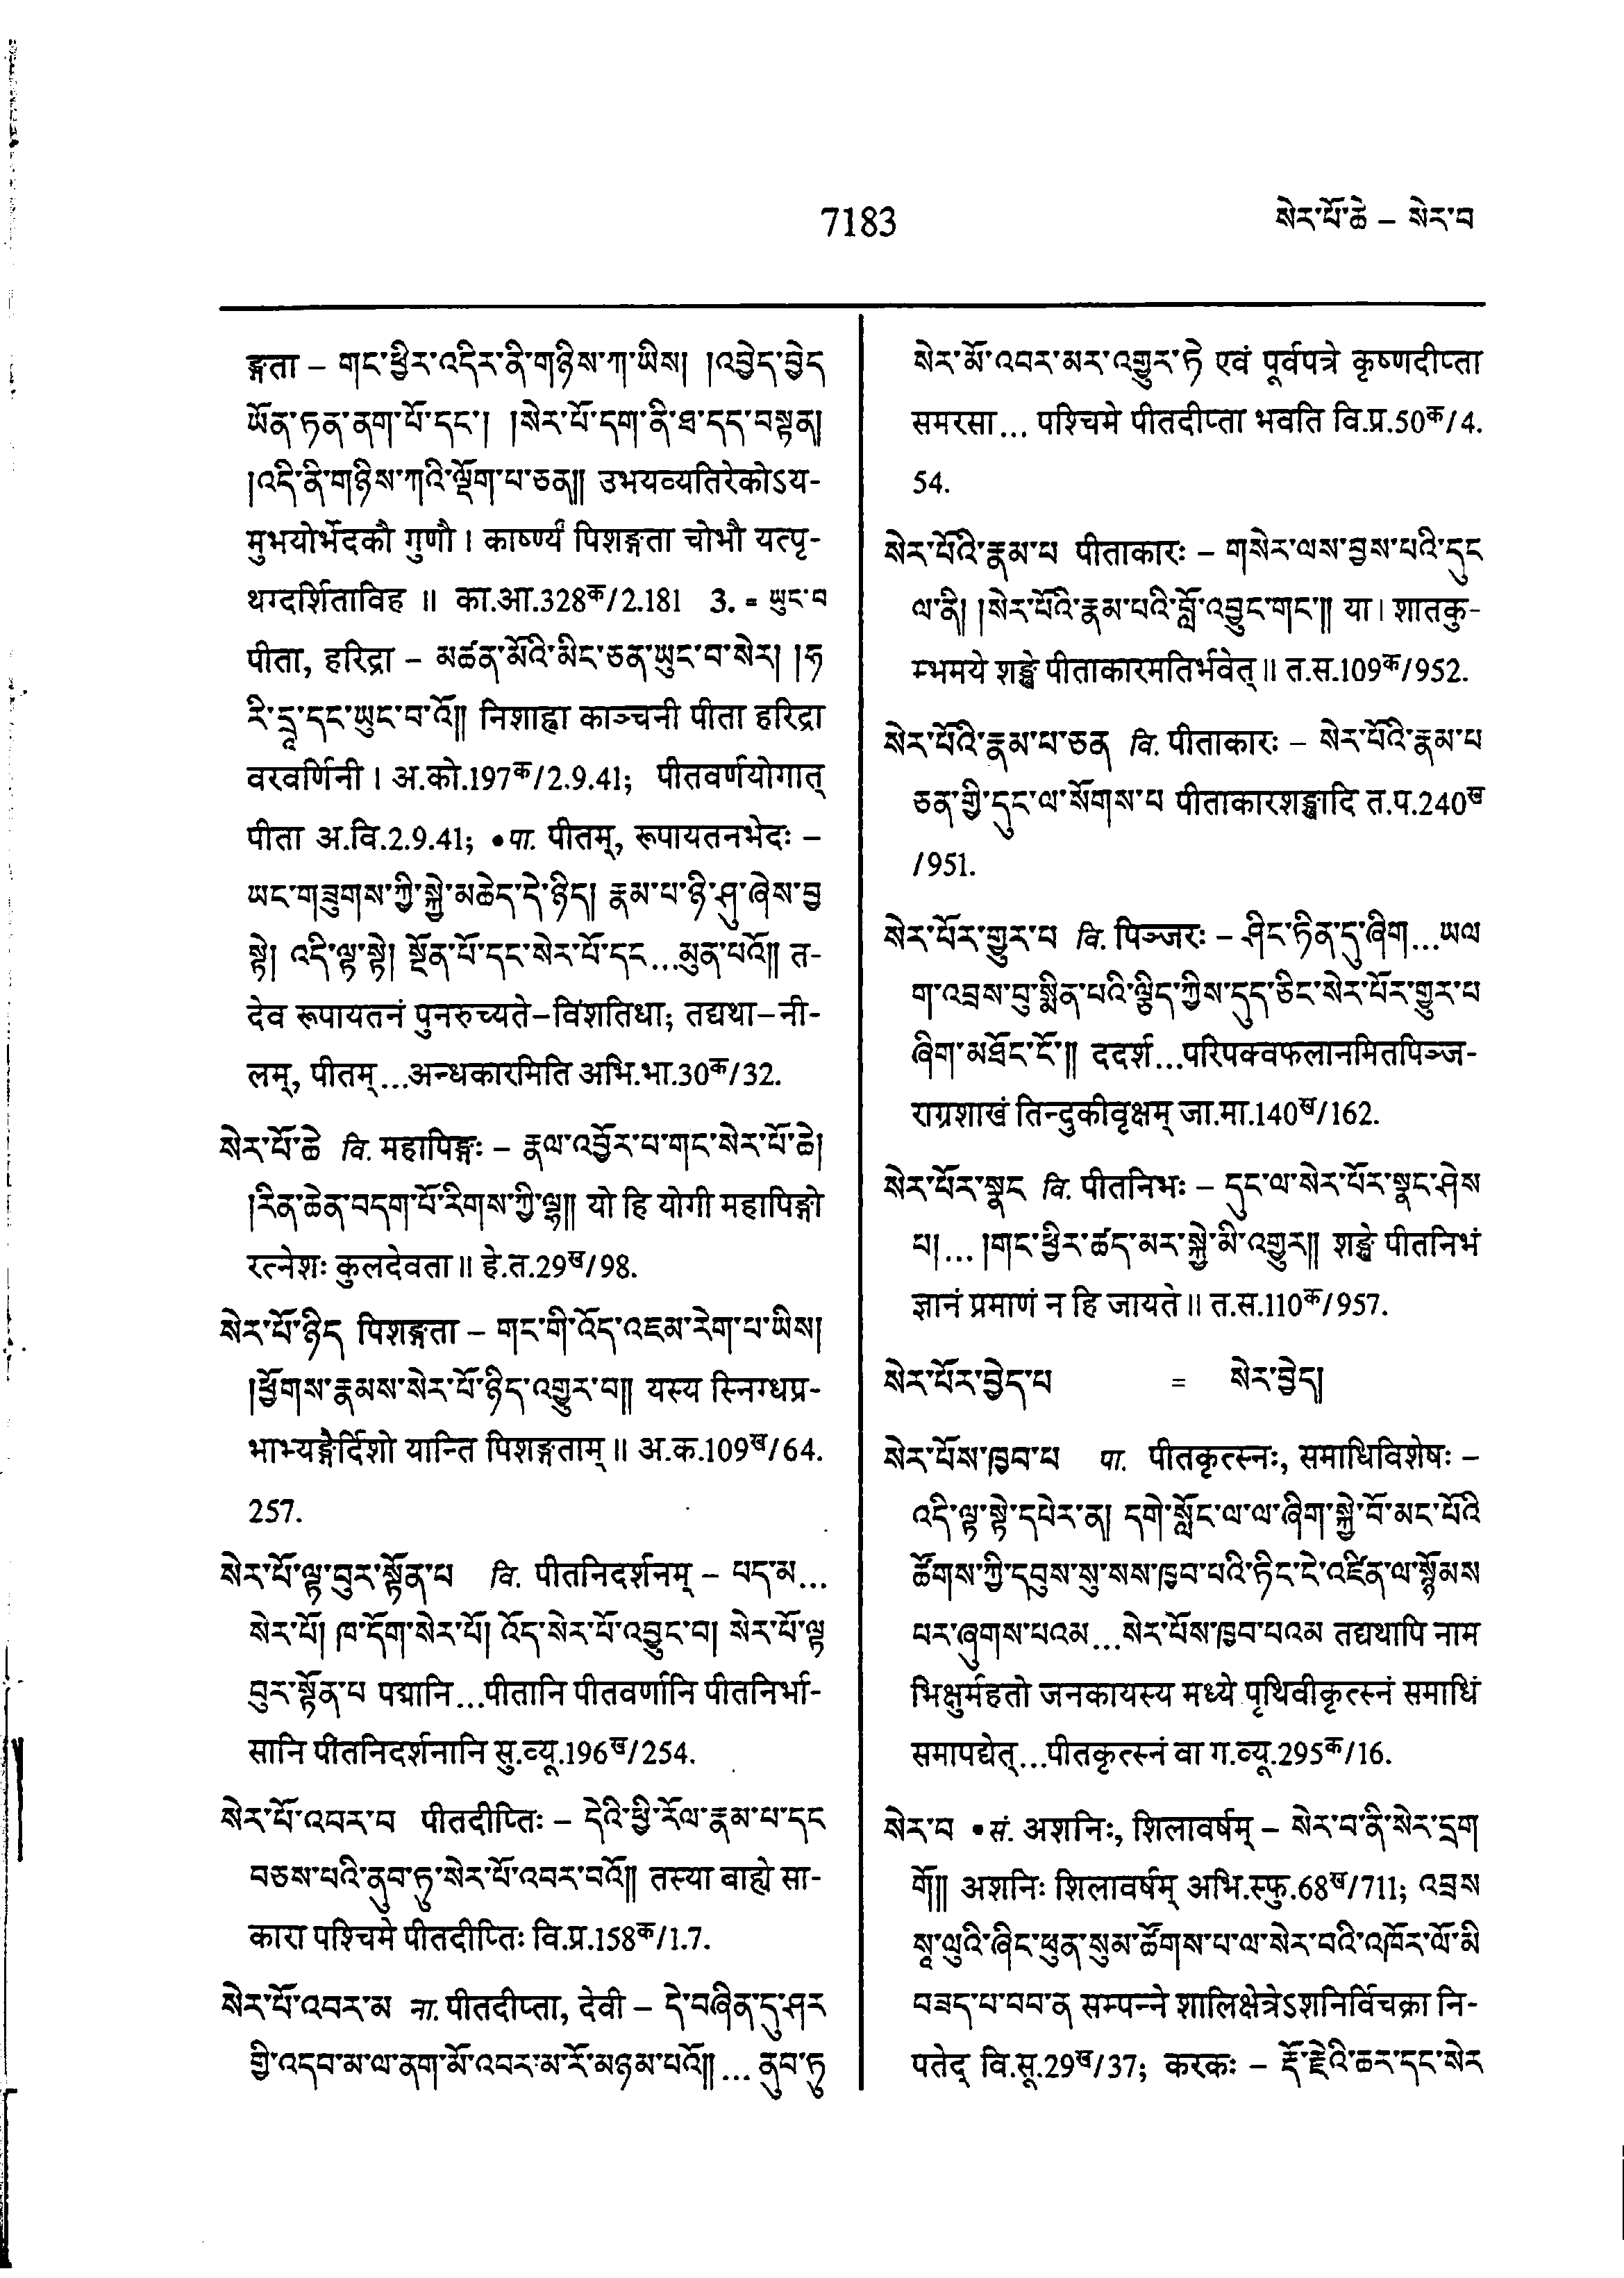 7183
སེར་པོ་ཆེ – སེར་བ
ङ्गता – གང་ཕྱིར་འདིར་ནི་གཉིས་ཀ་ཡིས། །འབྱེད་བྱེད
ཡོན་ཏན་ནག་པོ་དང་། །སེར་པོ་དག་ནི་ཐ་དད་བསྟན།
།འདི་ནི་གཉིས་ཀའི་ལྡོག་པ་ཅན།། उभयव्यतिरेकोऽय-
मुभयोर्भेदकौ गुणौ । कार्ष्ण्यं पिशङ्गता चोभौ यत्पृ-
थग्दर्शिताविह ॥ का.आ.328क/2.181 3. = ཡུང་བ
पीता, हरिद्रा – མཚན་མོའི་མིང་ཅན་ཡུང་བ་སེར། །ཧ
རི་དྲཱ་དང་ཡུང་བ་འོ།། निशाह्वा काञ्चनी पीता हरिद्रा
वरवर्णिनी । अ.को.197क/2.9.41; पीतवर्णयोगात्
पीता अ.वि.2.9.41; •पा. पीतम्, रूपायतनभेदः –
ཡང་གཟུགས་ཀྱི་སྐྱེ་མཆེད་དེ་ཉིད། རྣམ་པ་ཉི་ཤུ་ཞེས་བྱ
སྟེ། འདི་ལྟ་སྟེ། སྔོན་པོ་དང་སེར་པོ་དང...མུན་པའོ།། त-
देव रूपायतनं पुनरुच्यते–विंशतिधा; तद्यथा–नी-
लम्, पीतम्...अन्धकारमिति अभि.भा.30क/32.
སེར་པོ་ཆེ वि. महापिङ्गः – རྣལ་འབྱོར་པ་གང་སེར་པོ་ཆེ།
།རིན་ཆེན་བདག་པོ་རིགས་ཀྱི་ལྷ།། यो हि योगी महापिङ्गो
रत्नेशः कुलदेवता ॥ हे.त.29ख/98.
སེར་པོ་ཉིད पिशङ्गता – གང་གི་འོད་འཇམ་རེག་པ་ཡིས།
།ཕྱོགས་རྣམས་སེར་པོ་ཉིད་འགྱུར་བ།། यस्य स्निग्धप्र-
भाभ्यङ्गैर्दिशो यान्ति पिशङ्गताम् ॥ अ.क.109ख/64.
257.
སེར་པོ་ལྟ་བུར་སྟོན་པ वि. पीतनिदर्शनम् – པད་མ...
སེར་པོ། ཁ་དོག་སེར་པོ། འོད་སེར་པོ་འབྱུང་བ། སེར་པོ་ལྟ
བུར་སྟོན་པ पद्मानि...पीतानि पीतवर्णानि पीतनिर्भा-
सानि पीतनिदर्शनानि सु.व्यू.196ख/254.
སེར་པོ་འབར་བ पीतदीप्तिः – དེའི་ཕྱི་རོལ་རྣམ་པ་དང
བཅས་པའི་ནུབ་ཏུ་སེར་པོ་འབར་བའོ།། तस्या बाह्ये सा-
कारा पश्चिमे पीतदीप्तिः वि.प्र.158क/1.7.
སེར་པོ་འབར་མ ना. पीतदीप्ता, देवी – དེ་བཞིན་དུ་ཤར
གྱི་འདབ་མ་ལ་ནག་མོ་འབར་མ་རོ་མཉམ་པའོ།།... ནུབ་ཏུ
སེར་མོ་འབར་མར་འགྱུར་ཏེ एवं पूर्वपत्रे कृष्णदीप्ता
समरसा... पश्चिमे पीतदीप्ता भवति वि.प्र.50क/4.
54.
སེར་པོའི་རྣམ་པ पीताकारः – གསེར་ལས་བྱས་པའི་དུང
ལ་ནི། །སེར་པོའི་རྣམ་པའི་བློ་འབྱུང་གང་།། या । शातकु-
म्भमये शङ्खे पीताकारमतिर्भवेत् ॥ त.स.109क/952.
སེར་པོའི་རྣམ་པ་ཅན वि. पीताकारः – སེར་པོའི་རྣམ་པ
ཅན་གྱི་དུང་ལ་སོགས་པ पीताकारशङ्खादि त.प.240ख
/951.
སེར་པོར་གྱུར་པ वि. पिञ्जरः – ཤིང་ཏིན་དུ་ཞིག...ཡལ
ག་འབྲས་བུ་སྨིན་པའི་ལྗིད་ཀྱིས་དུད་ཅིང་སེར་པོར་གྱུར་པ
ཞིག་མཐོང་ངོ་།། ददर्श...परिपक्वफलानमितपिञ्ज-
राग्रशाखं तिन्दुकीवृक्षम् जा.मा.140ख/162.
སེར་པོར་སྣང वि. पीतनिभः – དུང་ལ་སེར་པོར་སྣང་ཤེས
པ།... །གང་ཕྱིར་ཚད་མར་སྐྱེ་མི་འགྱུར།། शङ्खे पीतनिभं
ज्ञानं प्रमाणं न हि जायते ॥ त.स.110क/957.
སེར་པོར་བྱེད་པ = སེར་བྱེད།
སེར་པོས་ཁྱབ་པ पा. पीतकृत्स्नः, समाधिविशेषः –
འདི་ལྟ་སྟེ་དཔེར་ན། དགེ་སློང་ལ་ལ་ཞིག་སྐྱེ་བོ་མང་པོའི
ཚོགས་ཀྱི་དབུས་སུ་སས་ཁྱབ་པའི་ཏིང་ངེ་འཛིན་ལ་སྙོམས
པར་ཞུགས་པའམ...སེར་པོས་ཁྱབ་པའམ तद्यथापि नाम
भिक्षुर्महतो जनकायस्य मध्ये पृथिवीकृत्स्नं समाधिं
समापद्येत्...पीतकृत्स्नं वा ग.व्यू.295क/16.
སེར་བ •सं. अशनिः, शिलावर्षम् – སེར་བ་ནི་སེར་དྲག
གོ།། अशनिः शिलावर्षम् अभि.स्फु.68ख/711; འབྲས
སཱ་ལུའི་ཞིང་ཕུན་སུམ་ཚོགས་པ་ལ་སེར་བའི་འཁོར་ལོ་མི
བཟད་པ་བབ་ན सम्पन्ने शालिक्षेत्रेऽशनिर्विचक्रा नि-
पतेद् वि.सू.29ख/37; करकः – རྡོ་རྗེའི་ཆར་དང་སེར